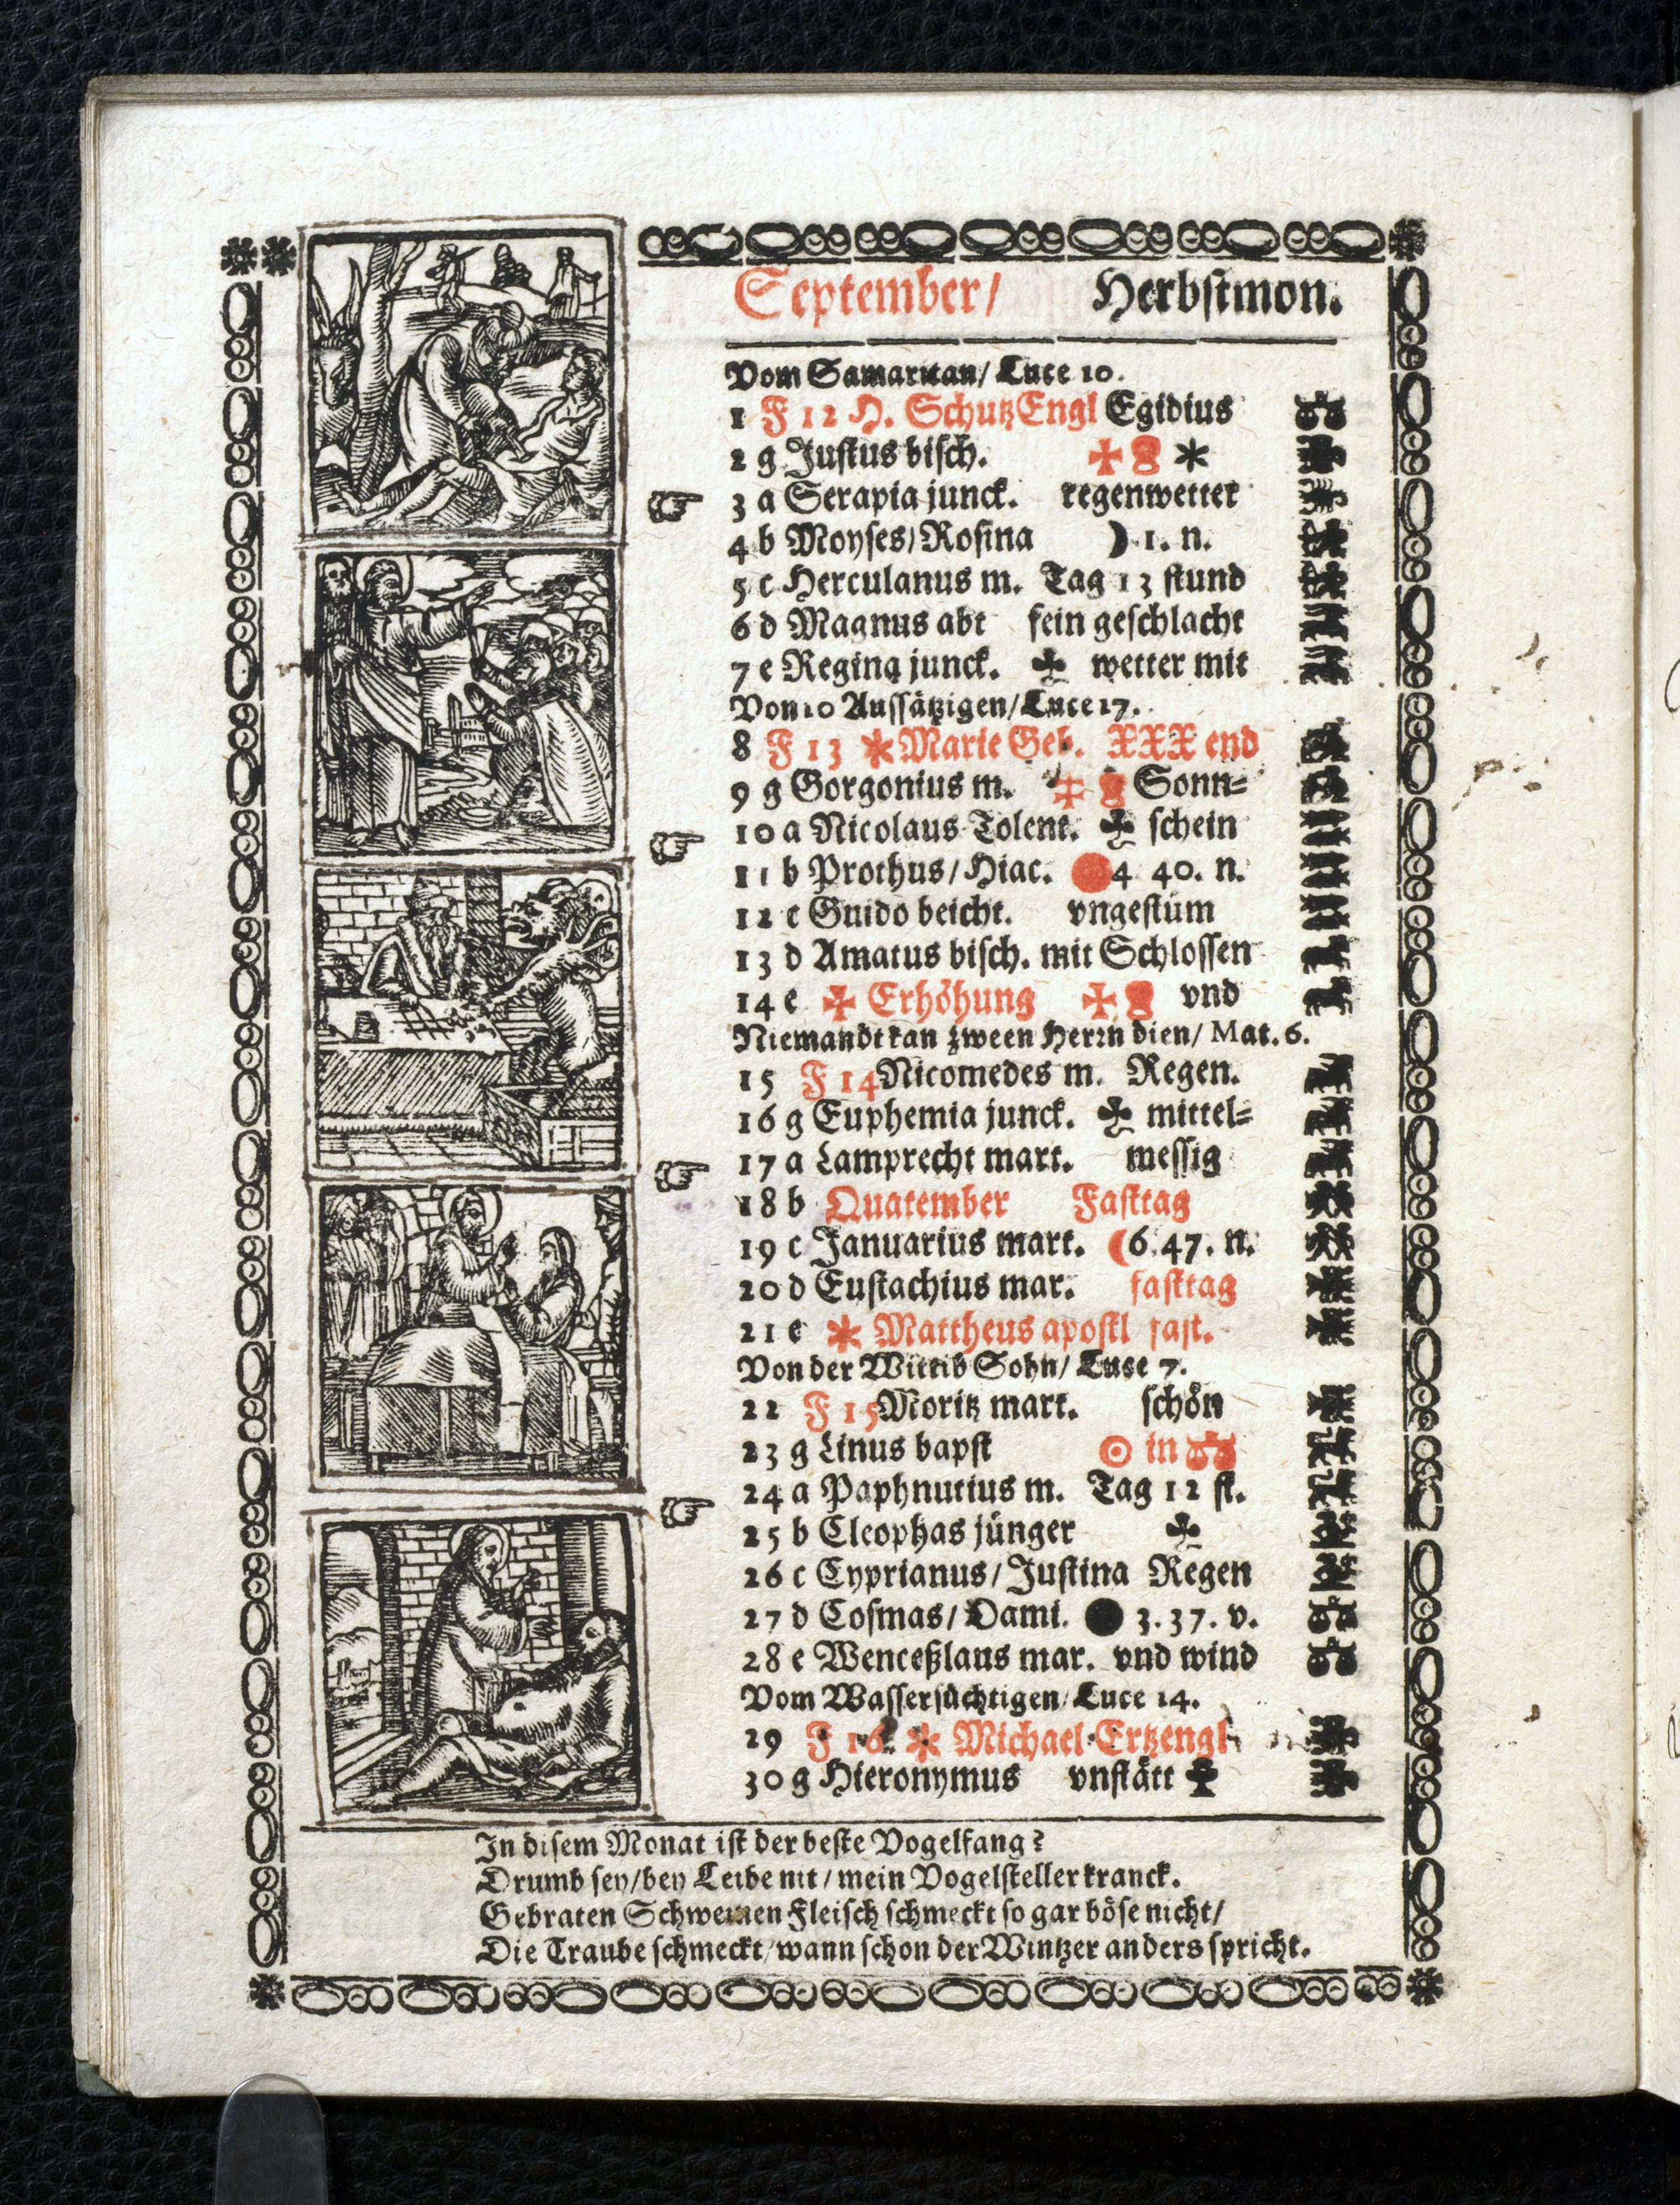 September/ Herbstmon.
Vom Samaritan/ Luce 10.
1 F 12 H. SchutzEngl Egidius
2 g Justus bisch.
3 a Serapia junck. regenwetter
4 b Moyses/Rosina ☽ 1. n.
5 c Herculanus m. Tag 13 stund
6 d Magnus abt fein geschlacht
7 e Regina junck. wetter mit
Von 10 Aussätzigen/Luce 17.
8 F 13 * Marie Geb. XXX end
9 g Gorgonius m. Sonn=
10 a Nicolaus Tolent. schein
11 b Prothus/Hiac. 4 40. n.
12 c Guido beicht. vngestüm
13 d Amatus bisch. mit Schlossen
14 e Erhöhung vnd
Niemandt kan zween Herrn dien/ Mat. 6.
15 F 14 Nicomedes m. Regen.
16 g Euphemia junck. mittel=
17 a Lamprecht mart. messig
18 b Quatember Fasttag
19 c Januarius mart. 6. 47. n.
20 d Eustachius mar. fasttag
21 e * Mattheus apostl fast.
Von der Wittib Sohn/ Luce 7.
22 F 15 Moritz mart. schön
23 g Linus bapst ☉ in ♎
24 a Paphnutius m. Tag 12 st.
25 b Cleophas jünger
26 c Cyprianus/Justina Regen
27 d Cosmas/Dami. 3. 37. v.
28 e Wenceßlaus mar. vnd wind
Vom Wassersüchtigen/Luce 14.
29 F 16 * Michael Ertzengl
30 g Hieronymus vnstätt
In disem Monat ist der beste Vogelfang?
Drumb sey/bey Leibe nit/mein Vogelsteller kranck.
Gebraten Schweinen Fleisch schmeckt so gar böse nicht/
Die Traube schmeckt/wann schon der Wintzer anders spricht.